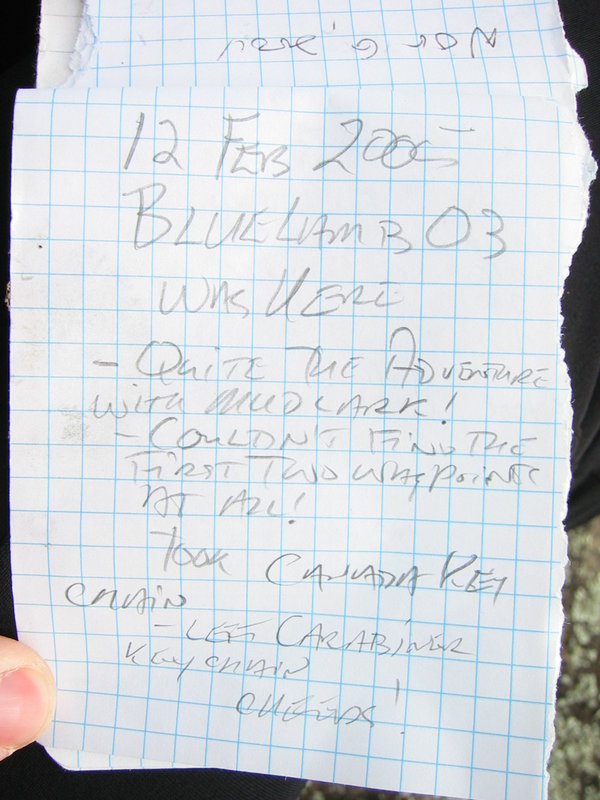 12 FEB 2005
BLUELAMB03
WAS HERE
- QUITE THE ADVENTURE
WITH MUDLARK!
- COULDN'T FIND THE
FIRST TWO WAYPOINTS
AT ALL!
TOOK CANADA KEY
CHAIN
- LEFT CARABINER
KEYCHAIN
CHEERS!